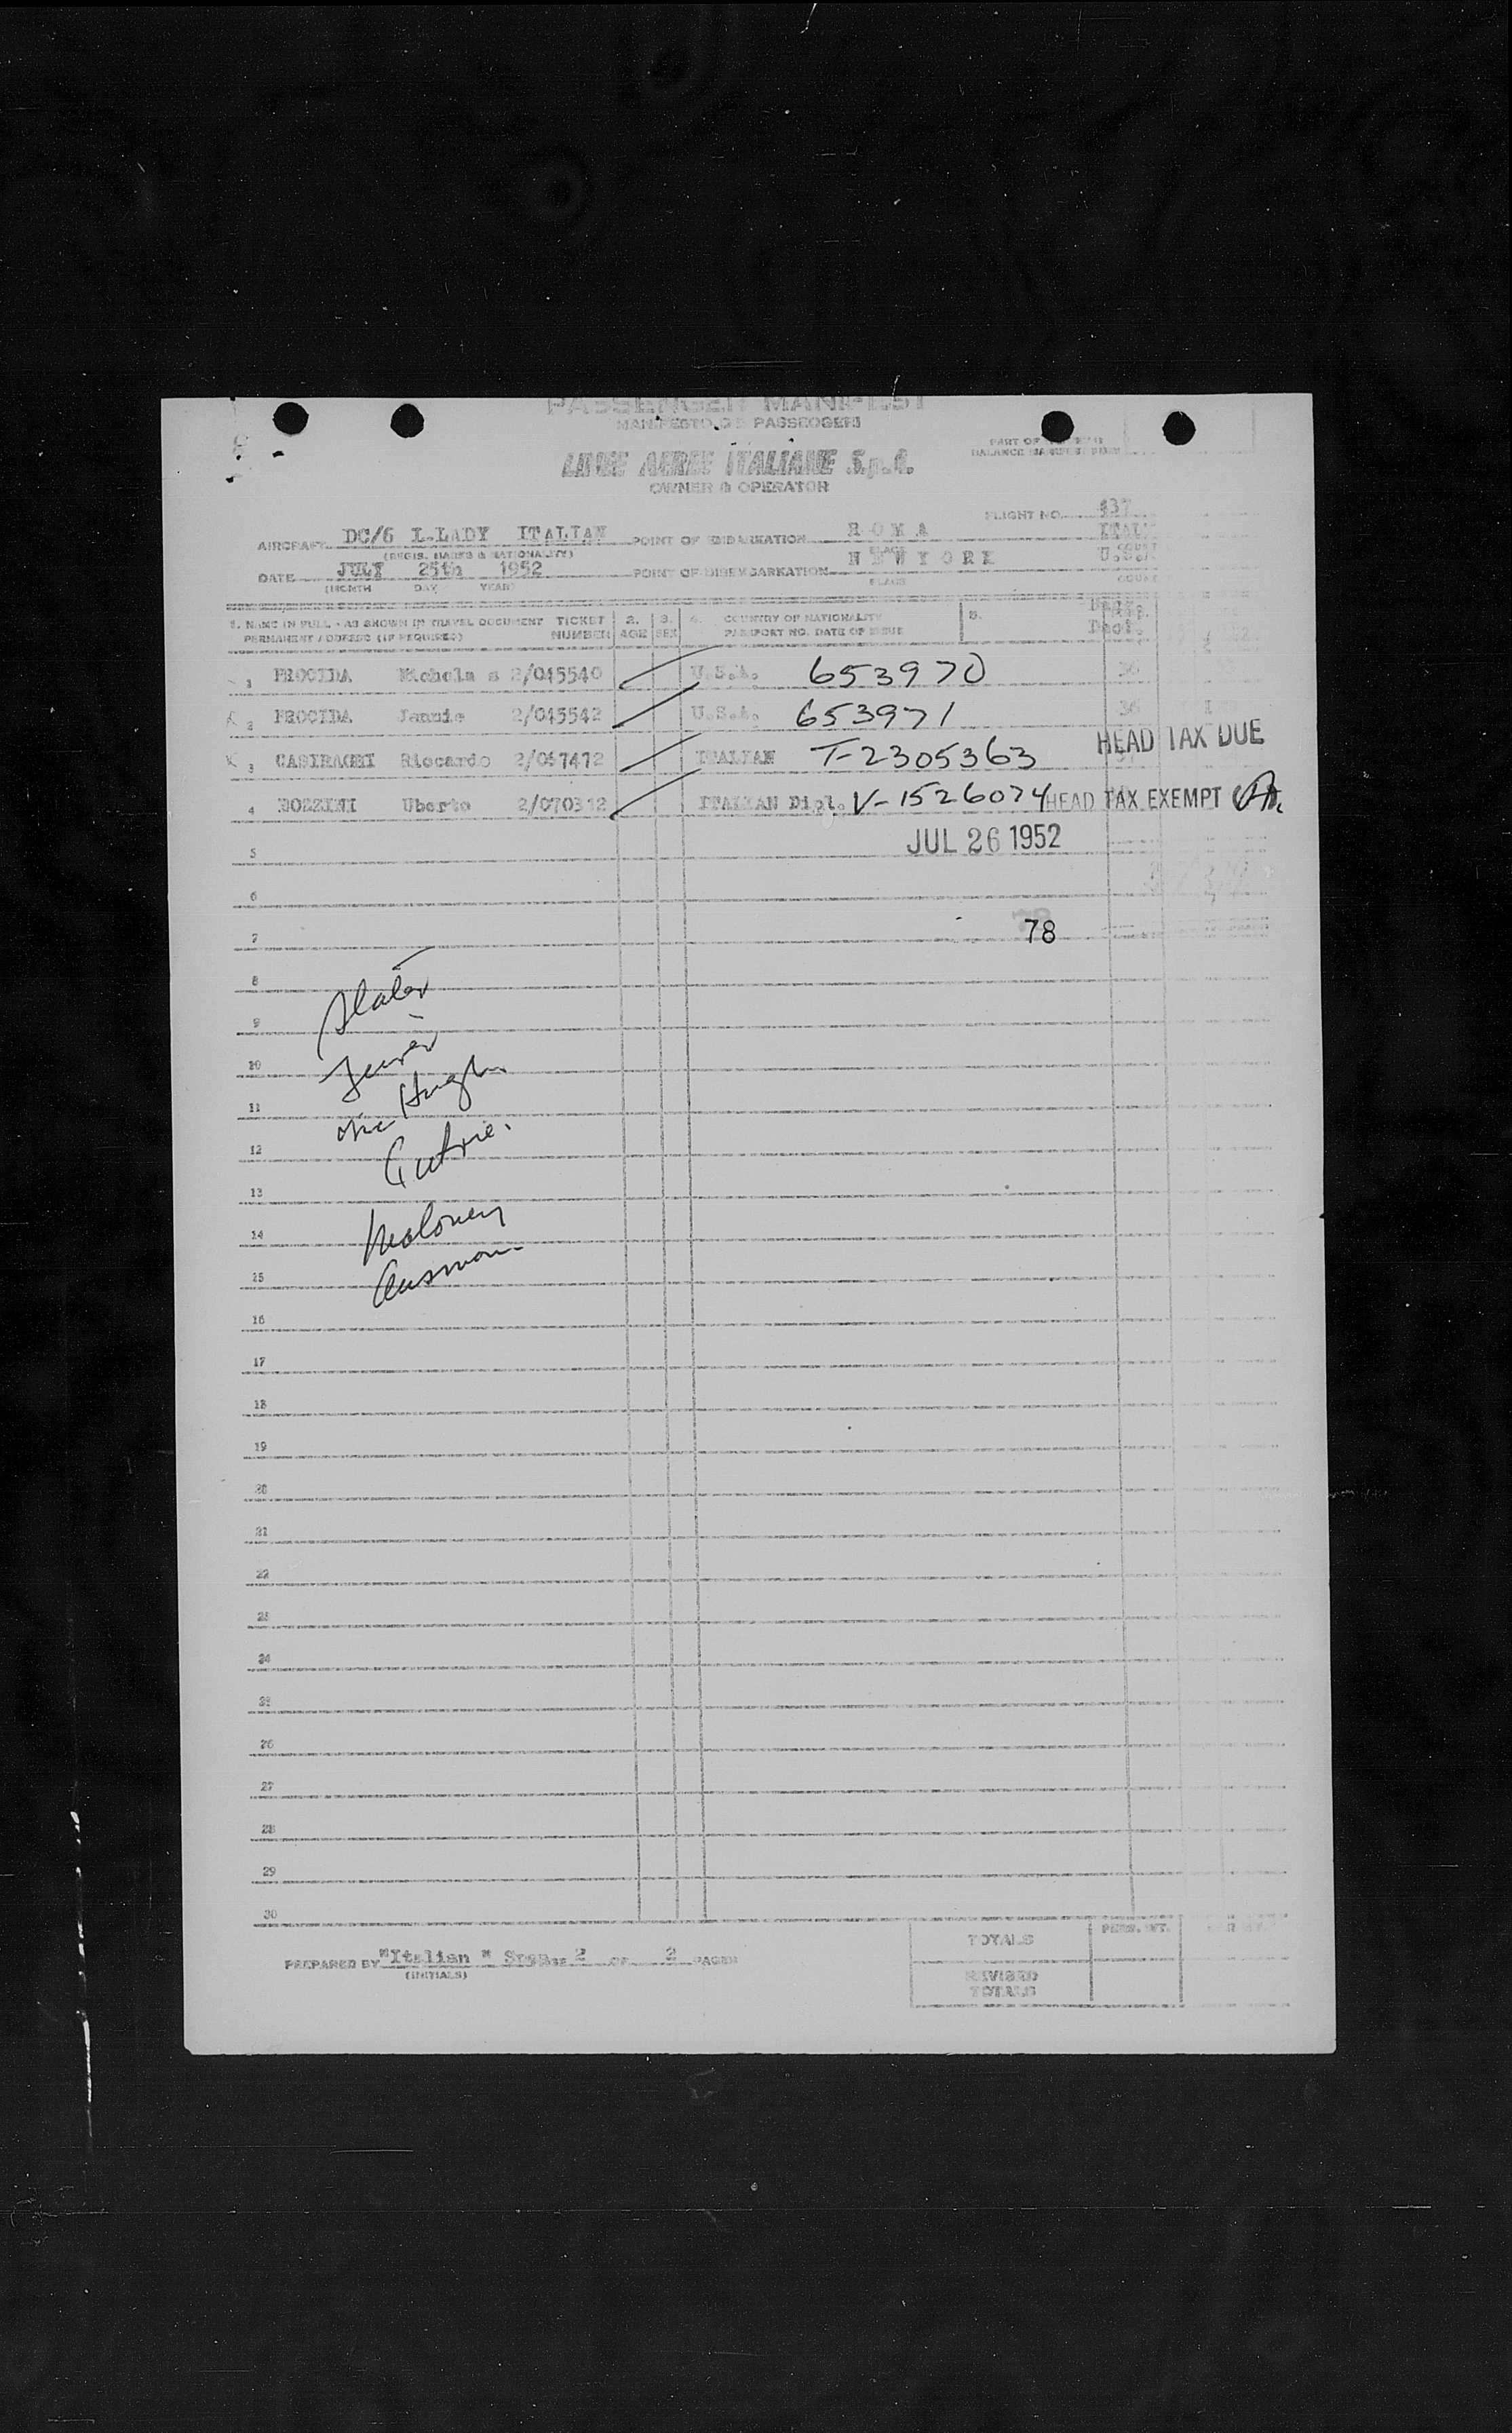 PASSENGER MANIFEST
MANIFESTO DI PASSEGGERI
PART OF
BALANCE MANIFEST FORM
LINEE AEREE ITALIANE S.p.A.
OWNER & OPERATOR
FLIGHT NO. 437
AIRCRAFT DC/6 I-LADY ITALIAN POINT OF EMBARKATION R O M A ITALY
(REGIS. MARKS & NATIONALITY) PLACE COUNT
DATE JULY 25th 1952 POINT OF DISEMBARKATION N E W Y O R K U.S.A.
(MONTH DAY YEAR) PLACE COUNT
1. NAME IN FULL - AS SHOWN IN TRAVEL DOCUMENT TICKET 2. 3. 4. COUNTRY OF NATIONALITY 5.
PERMANENT ADDRESS (IF REQUIRED) NUMBER AGE SEX PASSPORT NO. DATE OF ISSUE
1 PROCIDA Nichola s 2/045540 U.S.A. 653970 36
2 PROCIDA Jennie 2/045542 U.S.A. 653971 36 1
3 CASIRAGHI Riccardo 2/067472 ITALIAN T-2305363 HEAD TAX DUE
4 BOZZINI Uberto 2/070312 ITALIAN Dipl. V-1526074 HEAD TAX EXEMPT
JUL 26 1952
5
6
7 78
8
Slater
9
10
11
12
Guthrie.
13
14 Maloney
15
16
17
18
19
20
21
22
23
24
25
26
27
28
29
30
TOTALS PERS. WT.
PREPARED BY "Italian" 2 OF 2 PAGES
(INITIALS)
REVISED
TOTALS